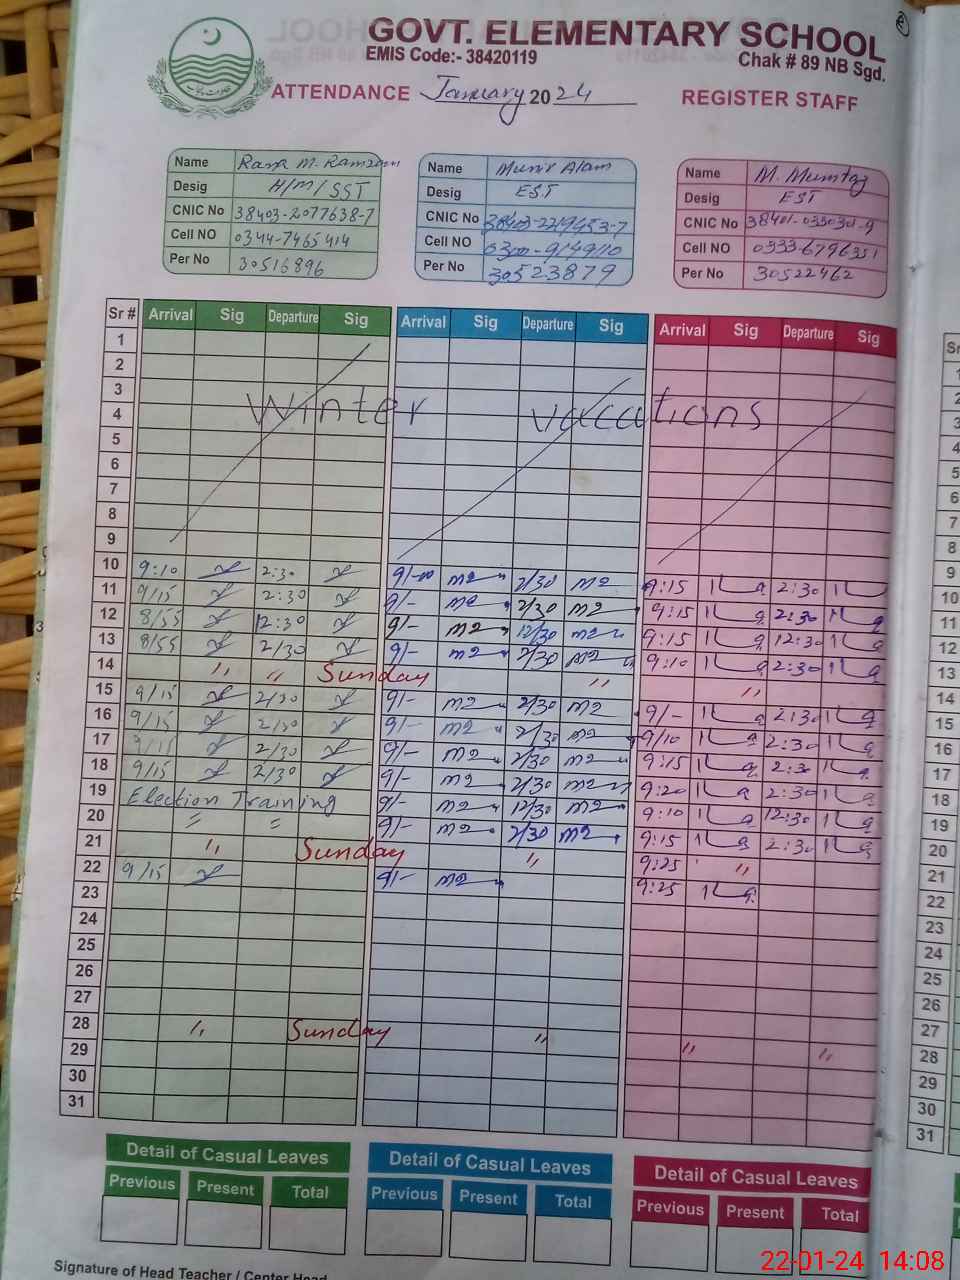 GOVT. ELEMENTARY SCHOOL
EMIS Code:- 38420119
Chak # 89 NB Sgd.
ATTENDANCE January 2024 REGISTER STAFF
Name Rana M. Ramzan
Desig H/M/SST
CNIC No 38403-2077638-7
Cell NO 0344-7465414
Per No 30516896
Name Munir Alam
Desig EST
CNIC No
Cell NO
Per No 30523879
Name M. Mumtaz
Desig EST
CNIC No
Cell NO 0333-6796351
Per No 30522462
Sr # Arrival Sig Departure Sig Arrival Sig Departure Sig Arrival Sig Departure Sig
1
2
3
4 Winter vacations
5
6
7
8
9
10 9:10 2:30 9/-00 2/30 9:15 2:30
11 9/15 2:30 9/- 2/30 9:15 2:30
12 8/55 12:30 9/- 12/30 9:15 12:30
13 8/55 2/30 9/- 2/30 9:10 2:30
14 " " Sunday " "
15 9/15 2/30 9/- 2/30 9/- 2:30
16 9/15 2/30 9/- 2/30 9/10 2:30
17 9/15 2/30 9/- 2/30 9:15 2:30
18 9/15 2/30 9/- 2/30 9:20 2:30
19 Election Training 9/- 12/30 9:10 12:30
20 = = 9/- 2/30 9:15 2:30
21 " Sunday " 9:25 "
22 9/15 9/- 9:25
23
24
25
26
27
28 " Sunday " " "
29
30
31
Detail of Casual Leaves Detail of Casual Leaves Detail of Casual Leaves
Previous Present Total Previous Present Total Previous Present Total
Signature of Head Teacher / Center Head
Sr
1
2
3
4
5
6
7
8
9
10
11
12
13
14
15
16
17
18
19
20
21
22
23
24
25
26
27
28
29
30
31
22-01-24 14:08